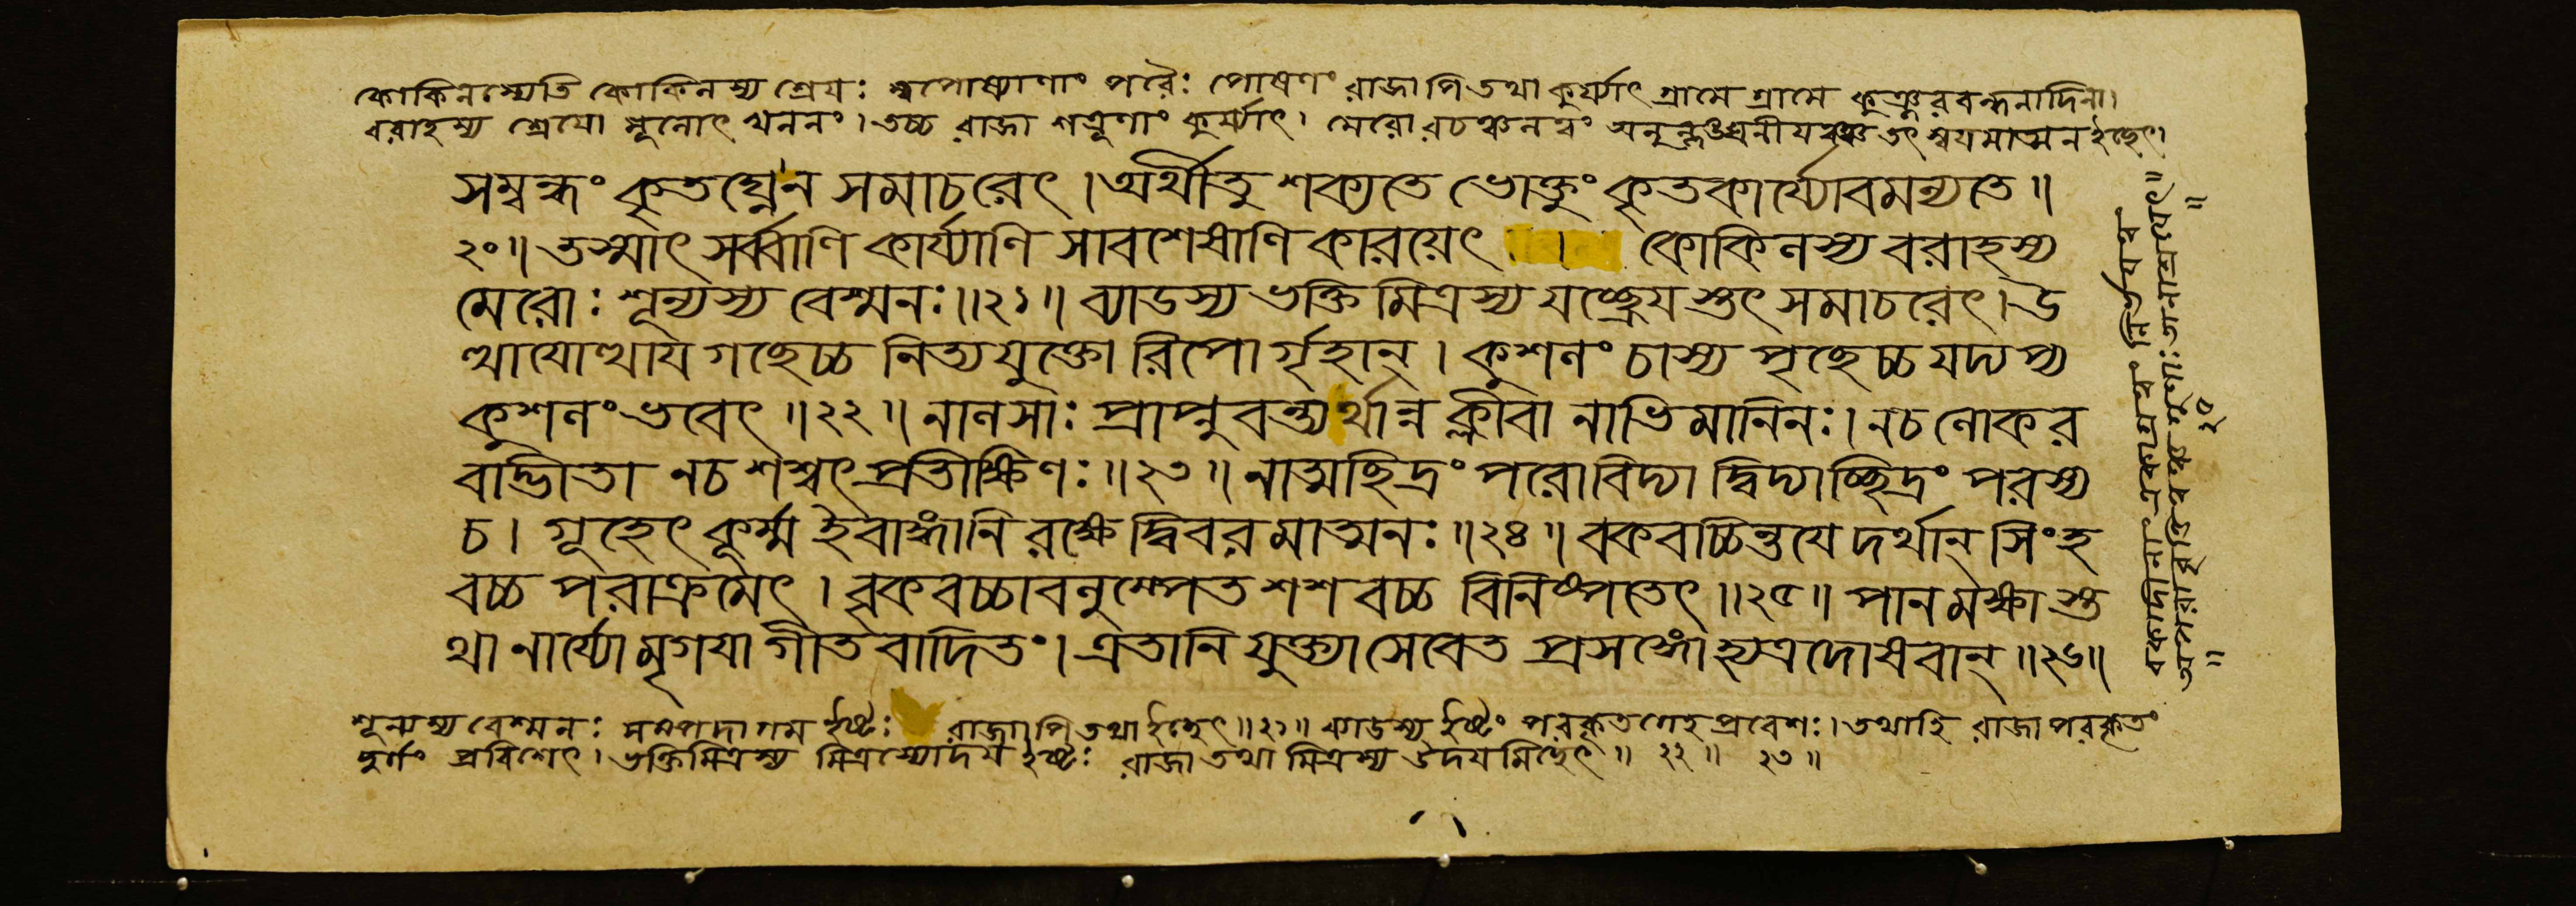 কোকিলস্যেতি কোকিলস্য শ্রেয়ঃ স্বপোষ্যাণাং পরৈঃ পোষণং রাজাপি তথা কুর্য্যাৎ গ্রামে গ্রামে কুঞ্জরবন্ধনাদিনা।
বরাহস্য শ্রেয়ো মূলোৎখননং। তচ্চ রাজা শত্রূণাং কুর্য্যাৎ। মেরোরচঞ্চলত্বং অনুল্লঙ্ঘনীয়ত্বঞ্চ তৎ স্বয়মাত্মন ইচ্ছেৎ।
সম্বন্ধং কৃতঘ্নেন সমাচরেৎ। অর্থী তু শক্যতে ভোক্তুং কৃতকার্য্যোবমন্যতে॥
২০॥ তস্মাৎ সর্ব্বাণি কার্য্যাণি সাবশেষাণি কারয়েৎ। কোকিলস্য বরাহস্য
মেরোঃ শূন্যস্য বেশ্মনঃ॥২১॥ ব্যাডস্য ভক্তিমিত্রস্য যচ্ছ্রেয়স্তৎ সমাচরেৎ। উ
ত্থায়োত্থায় গচ্ছেচ্চ নিত্যযুক্তো রিপোর্গৃহান্। কুশলং চাস্য পৃচ্ছেচ্চ যদ্যপ্য
কুশলং ভবেৎ॥২২॥ নালসাঃ প্রাপ্নুবন্ত্যর্থান্ন ক্লীবা নাভিমানিনঃ। ন চ লোকর
বাদ্ভীতা ন চ শশ্বৎ প্রতীক্ষিণঃ॥২৩॥ নাত্মছিদ্রং পরোবিদ্যাদ্বিদ্যাচ্ছিদ্রং পরস্য
চ। গূহেৎ কূর্ম্ম ইবাঙ্গানি রক্ষেদ্বিবরমাত্মনঃ॥২৪॥ বকবচ্চিন্তয়েদর্থান্ সিংহ
বচ্চ পরাক্রমেৎ। বৃকবচ্চাবলুম্পেত শশবচ্চ বিনিষ্পতেৎ॥২৫॥ পানমক্ষাস্ত
থা নার্য্যো মৃগয়া গীতবাদিতং। এতানি যুক্ত্যা সেবেত প্রসঙ্গো হ্যত্র দোষবান্॥২৬॥
শূন্যস্য বেশ্মনঃ সম্পদাগম ইষ্টঃ রাজাপি তথা ইচ্ছেৎ॥২১॥ ব্যাডস্য ইষ্টং পরকৃতগেহপ্রবেশঃ। তথাহি রাজা পরকৃতং
দুর্গং প্রবিশেৎ। ভক্তিমিত্রস্য মিত্রস্যোদয় ইষ্টঃ রাজা তথা মিত্রস্য উদয়মিচ্ছেৎ॥ ২২॥ ২৩॥
২০